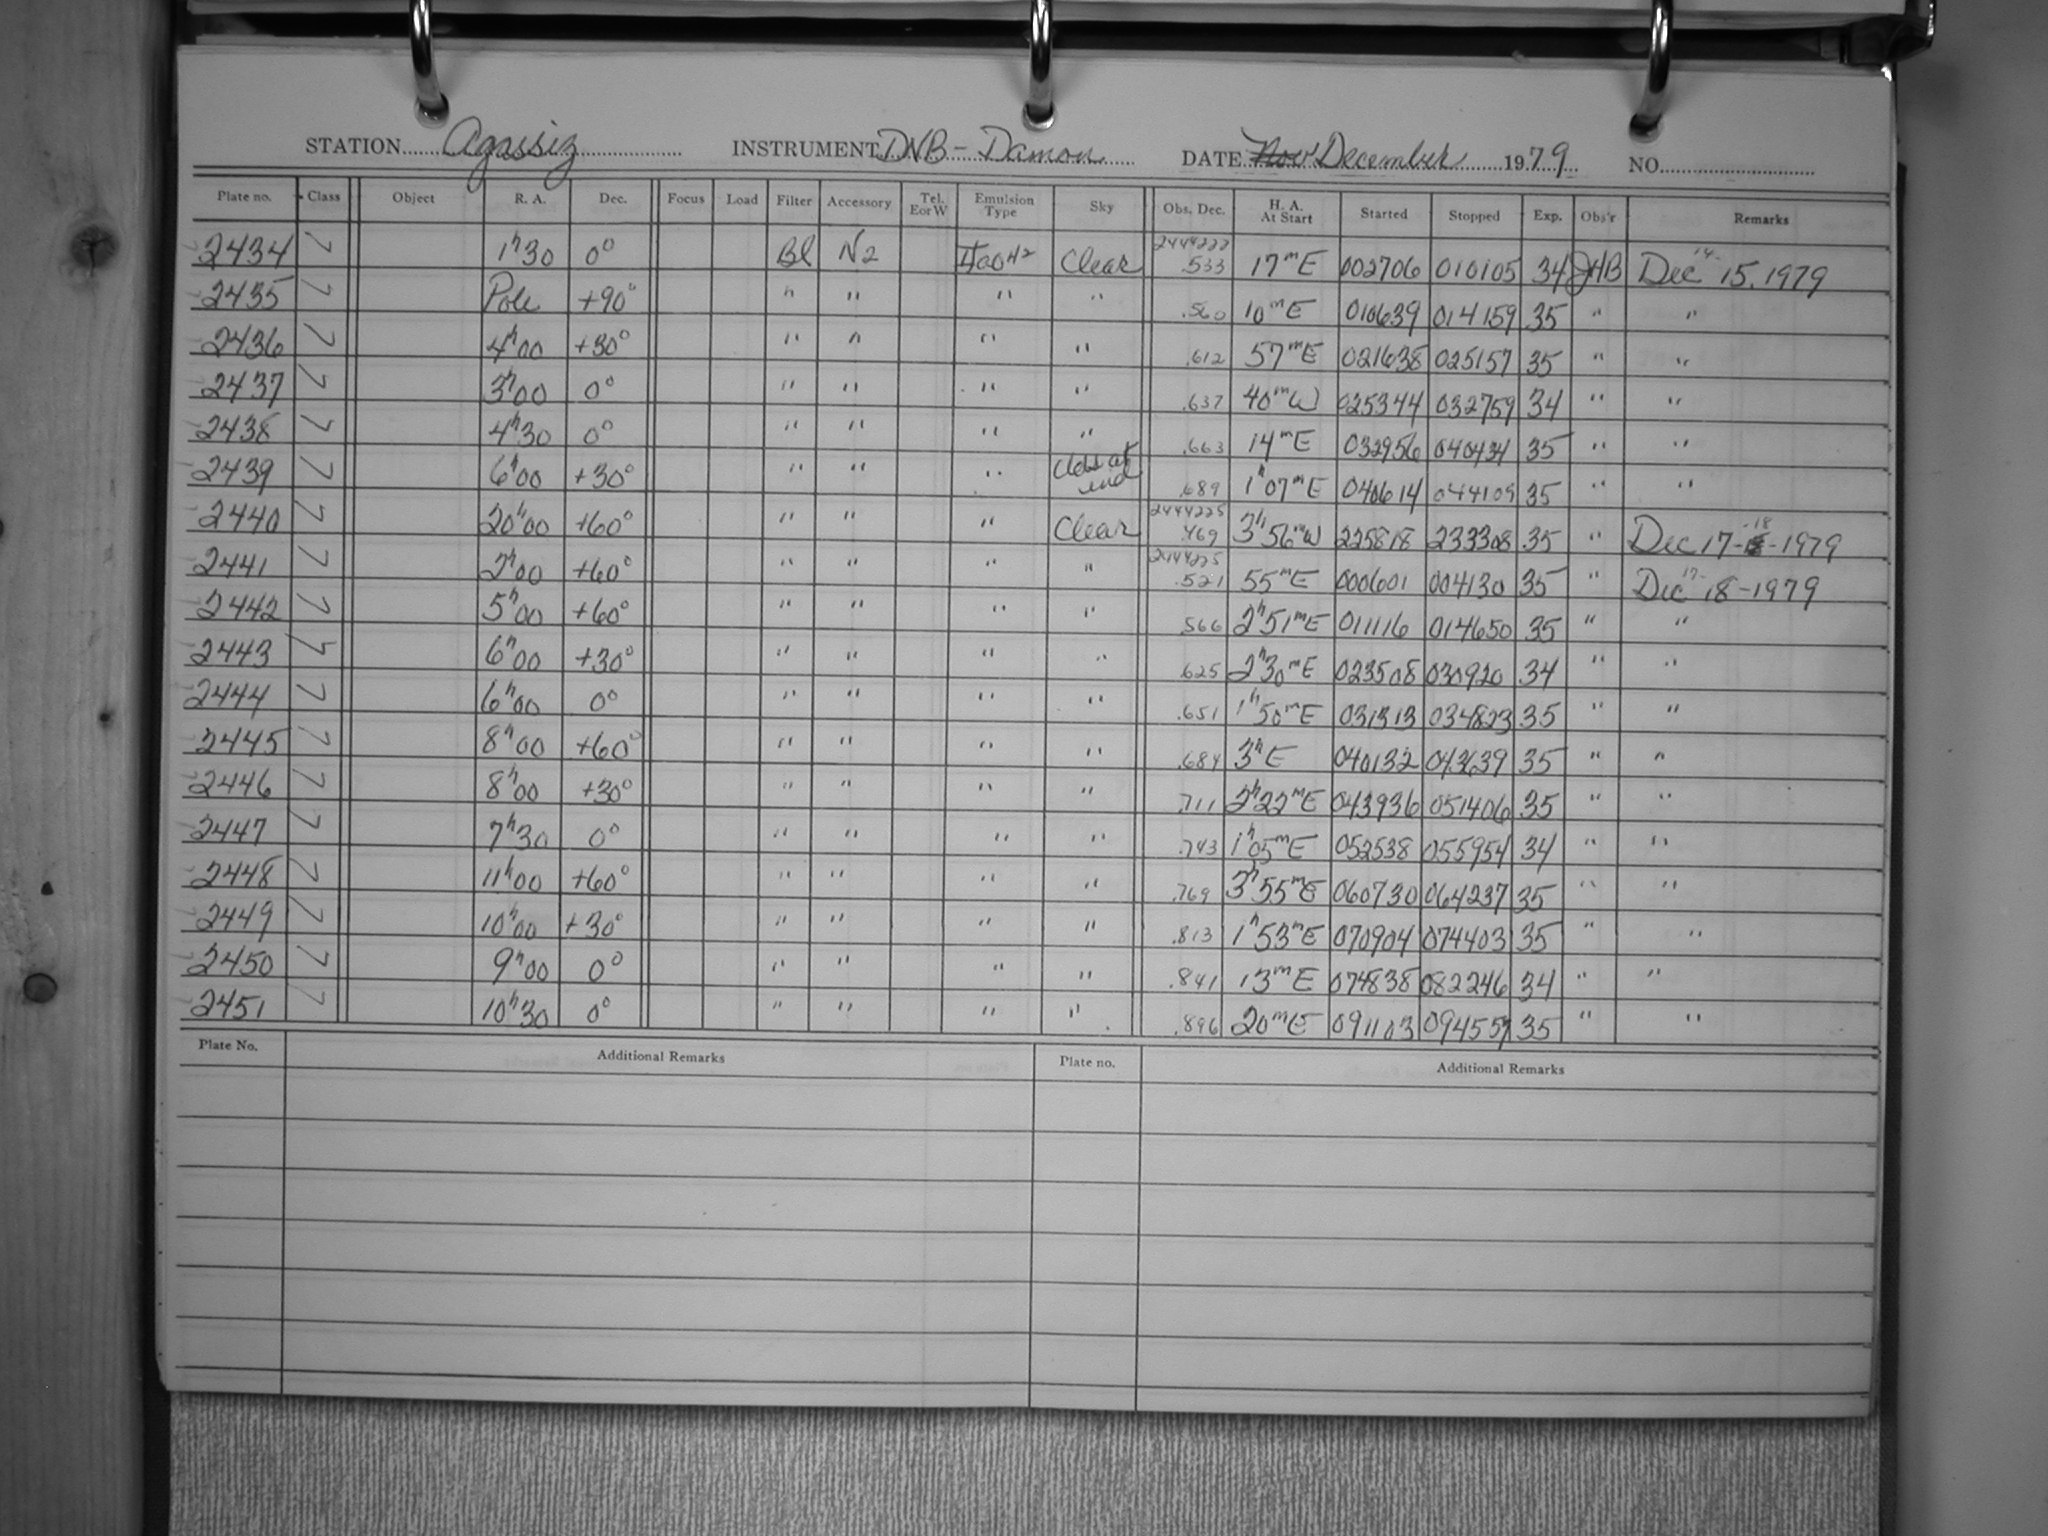 STATION Agassiz INSTRUMENT DNB - Damon DATE Nov December 1979 NO.
Plate no. Class Object R. A. Dec. Focus Load Filter Accessory Tel. E or W Emulsion Type Sky Obs, Dec. H. A. At Start Started Stopped Exp. Obs'r Remarks
2434 7 1h30 0° Bl N2 IIaO H2 Clear 2444222 .533 17mE 002706 010105 34 JHB Dec 14- 15, 1979
2435 7 Pole +90° " " " " .560 10mE 010639 014159 35 " "
2436 7 4h00 +30° " " " " .612 57mE 021638 025157 35 " "
2437 7 3h00 0° " " " " .637 40mW 025344 032759 34 " "
2438 7 4h30 0° " " " " .663 14mE 032956 040434 35 " "
2439 7 6h00 +30° " " " at end .689 1h07mE 040614 044109 35 " "
2440 7 20h00 +60° " " " Clear 2444225 .469 3h56mW 225818 233308 35 " Dec 17-18-1979
2441 7 2h00 +60° " " " " 2444225 .521 55mE 000601 004130 35 " Dec 17- 18-1979
2442 7 5h00 +60° " " " " .566 2h51mE 011116 014650 35 " "
2443 7 6h00 +30° " " " " .625 2h30mE 023508 030920 34 " "
2444 7 6h00 0° " " " " .651 1h50mE 031313 034823 35 " "
2445 7 8h00 +60° " " " " .684 3hE 040132 043639 35 " "
2446 7 8h00 +30° " " " " .711 2h22mE 043936 051406 35 " "
2447 7 7h30 0° " " " " .743 1h05mE 052538 055954 34 " "
2448 7 11h00 +60° " " " " .769 3h55mE 060730 064237 35 " "
2449 7 10h00 +30° " " " " .813 1h53mE 070904 074403 35 " "
2450 7 9h00 0° " " " " .841 13mE 074838 082246 34 " "
2451 7 10h30 0° " " " " .896 20mE 091103 094557 35 " "
Plate No. Additional Remarks Plate no. Additional Remarks